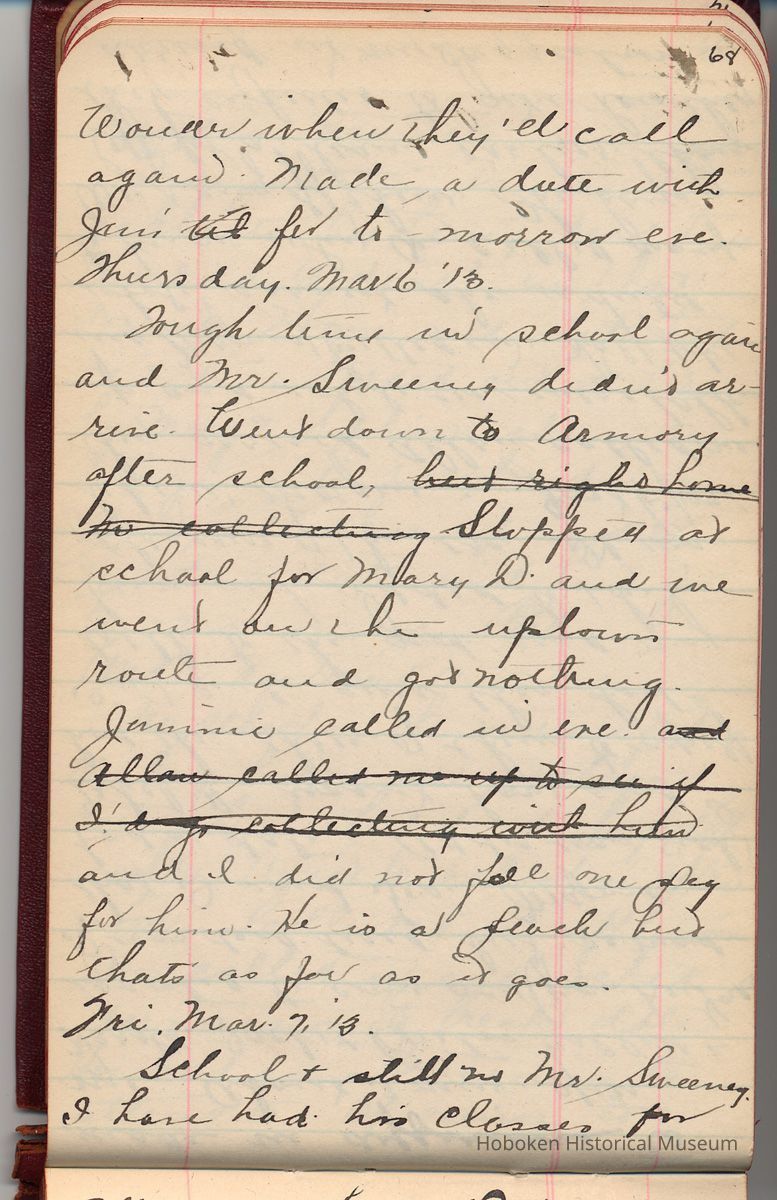 68
Wonder when they'd call
again. Made a date with
Jim till for to-morrow eve.
Thursday. Mar 6 '13.
Tough time in school again
and Mr. Sweeney didn't ar-
rive. Went down to Armory
after school, but right home
no collecting Stopped at
school for Mary D. and we
went on the uptown
route and got nothing.
Jimmie called in eve. and
Allan called me up to see if
I'd go collecting with him
and I did not fall one
for him. He is a peach but
thats as far as it goes.
Fri. Mar. 7, '13.
School & still no Mr. Sweeney.
I have had his classes for
Hoboken Historical Museum